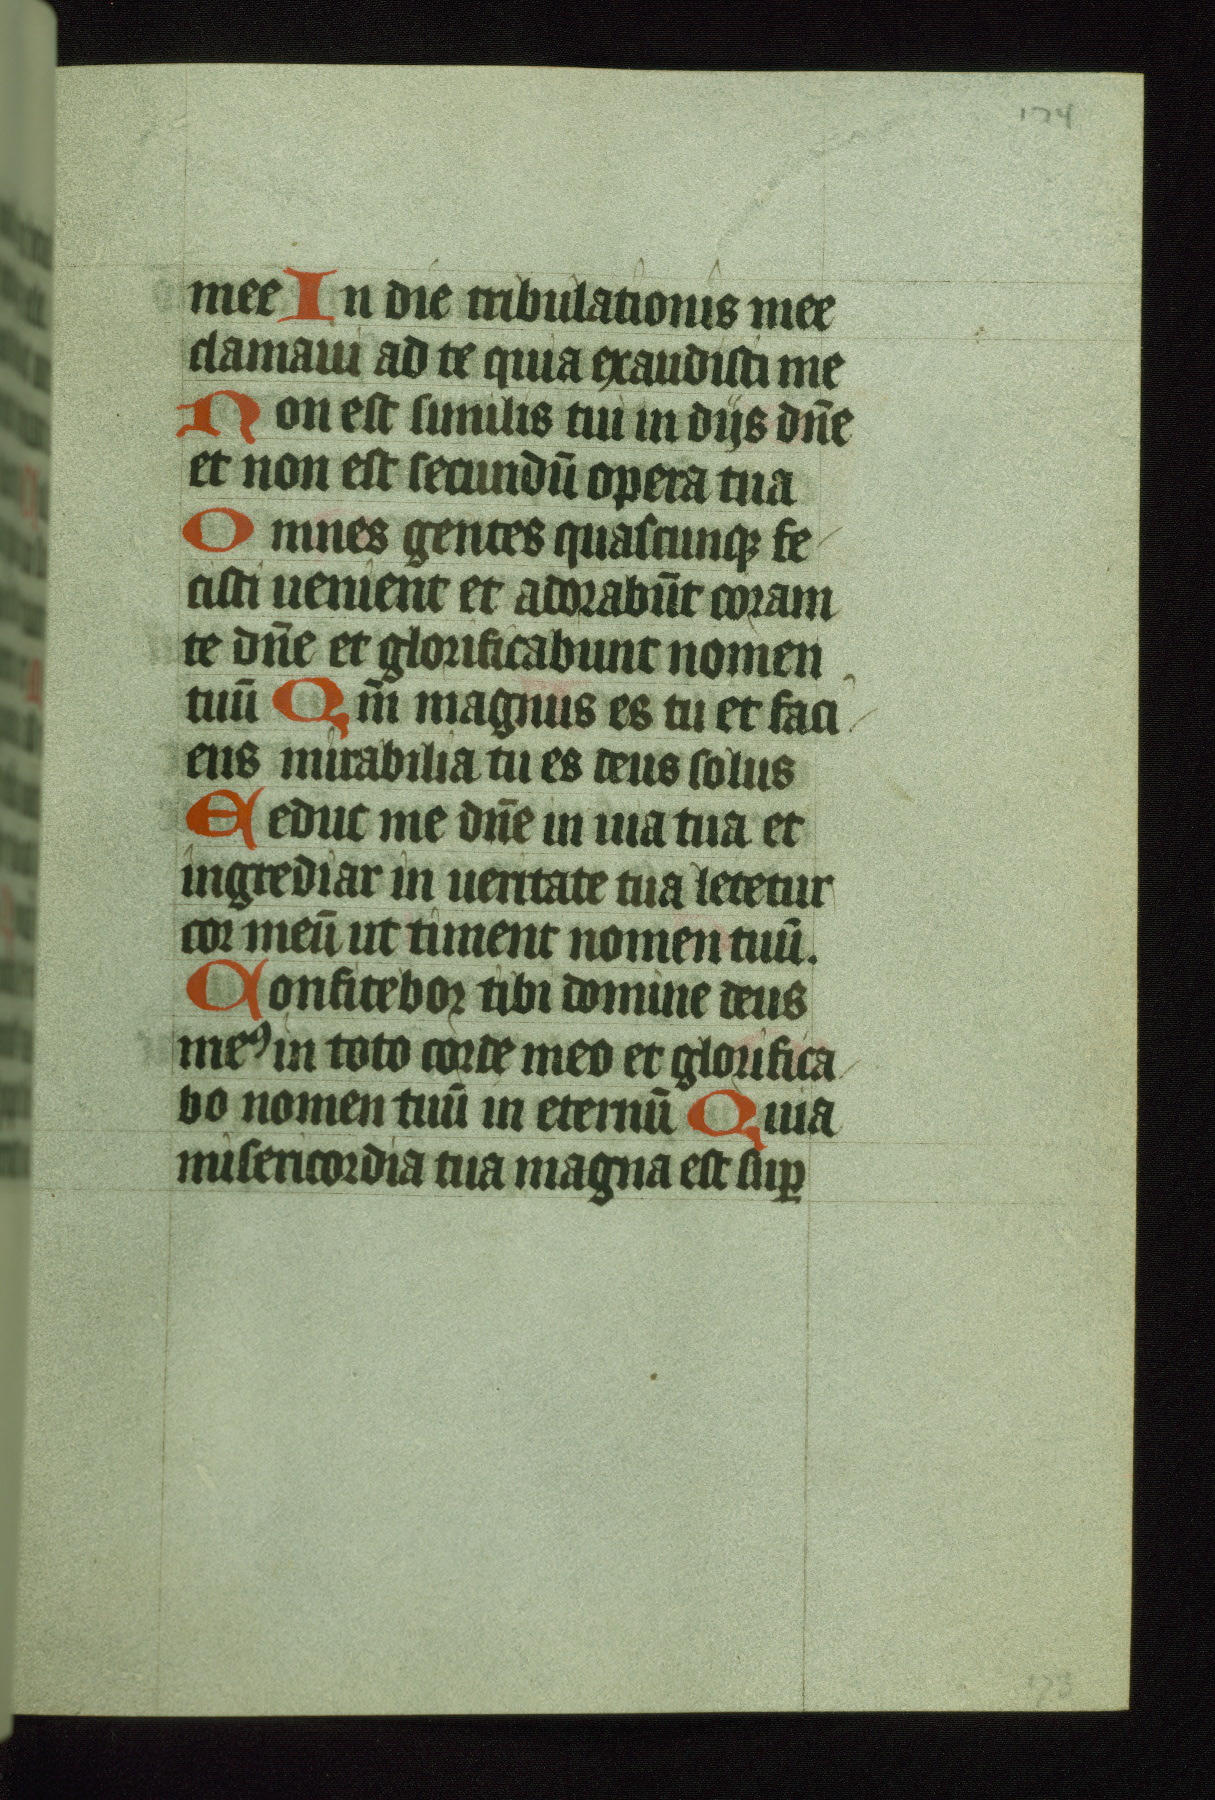 174
mee In die tribulationis mee
clamaui ad te quia exaudisti me
Non est similis tui in dijs dn̄e
et non est secundū opera tua
Omnes gentes quascunqꝫ fe
cisti uenient et adorabūt coram
te dn̄e et glorificabunt nomen
tuū Qm̄ magnus es tu et faci
ens mirabilia tu es deus solus
Deduc me dn̄e in uia tua et
ingrediar in ueritate tua letetur
cor meū ut timent nomen tuū.
Confitebor tibi domine deus
meꝰ in toto corde meo et glorifica
bo nomen tuū in eternū Quia
misericordia tua magna est suꝑ
173